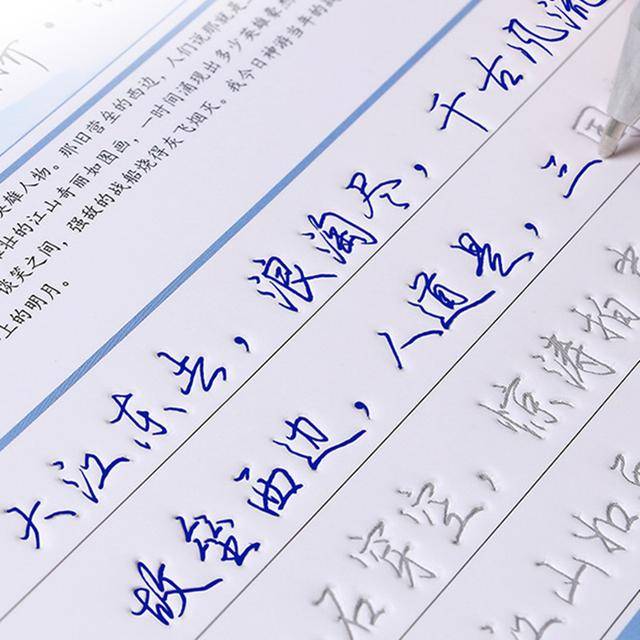 人物。那旧营垒的西边，人们说那就是
的江山奇丽如图画，一时间涌现出多少英雄豪杰
谈笑之间，强敌的战船烧得灰飞烟灭。我今日神游当年的战
上的明月。
大江东去，浪淘尽，千古风流
故垒西边，人道是，三
石穿空，惊涛拍
江山如